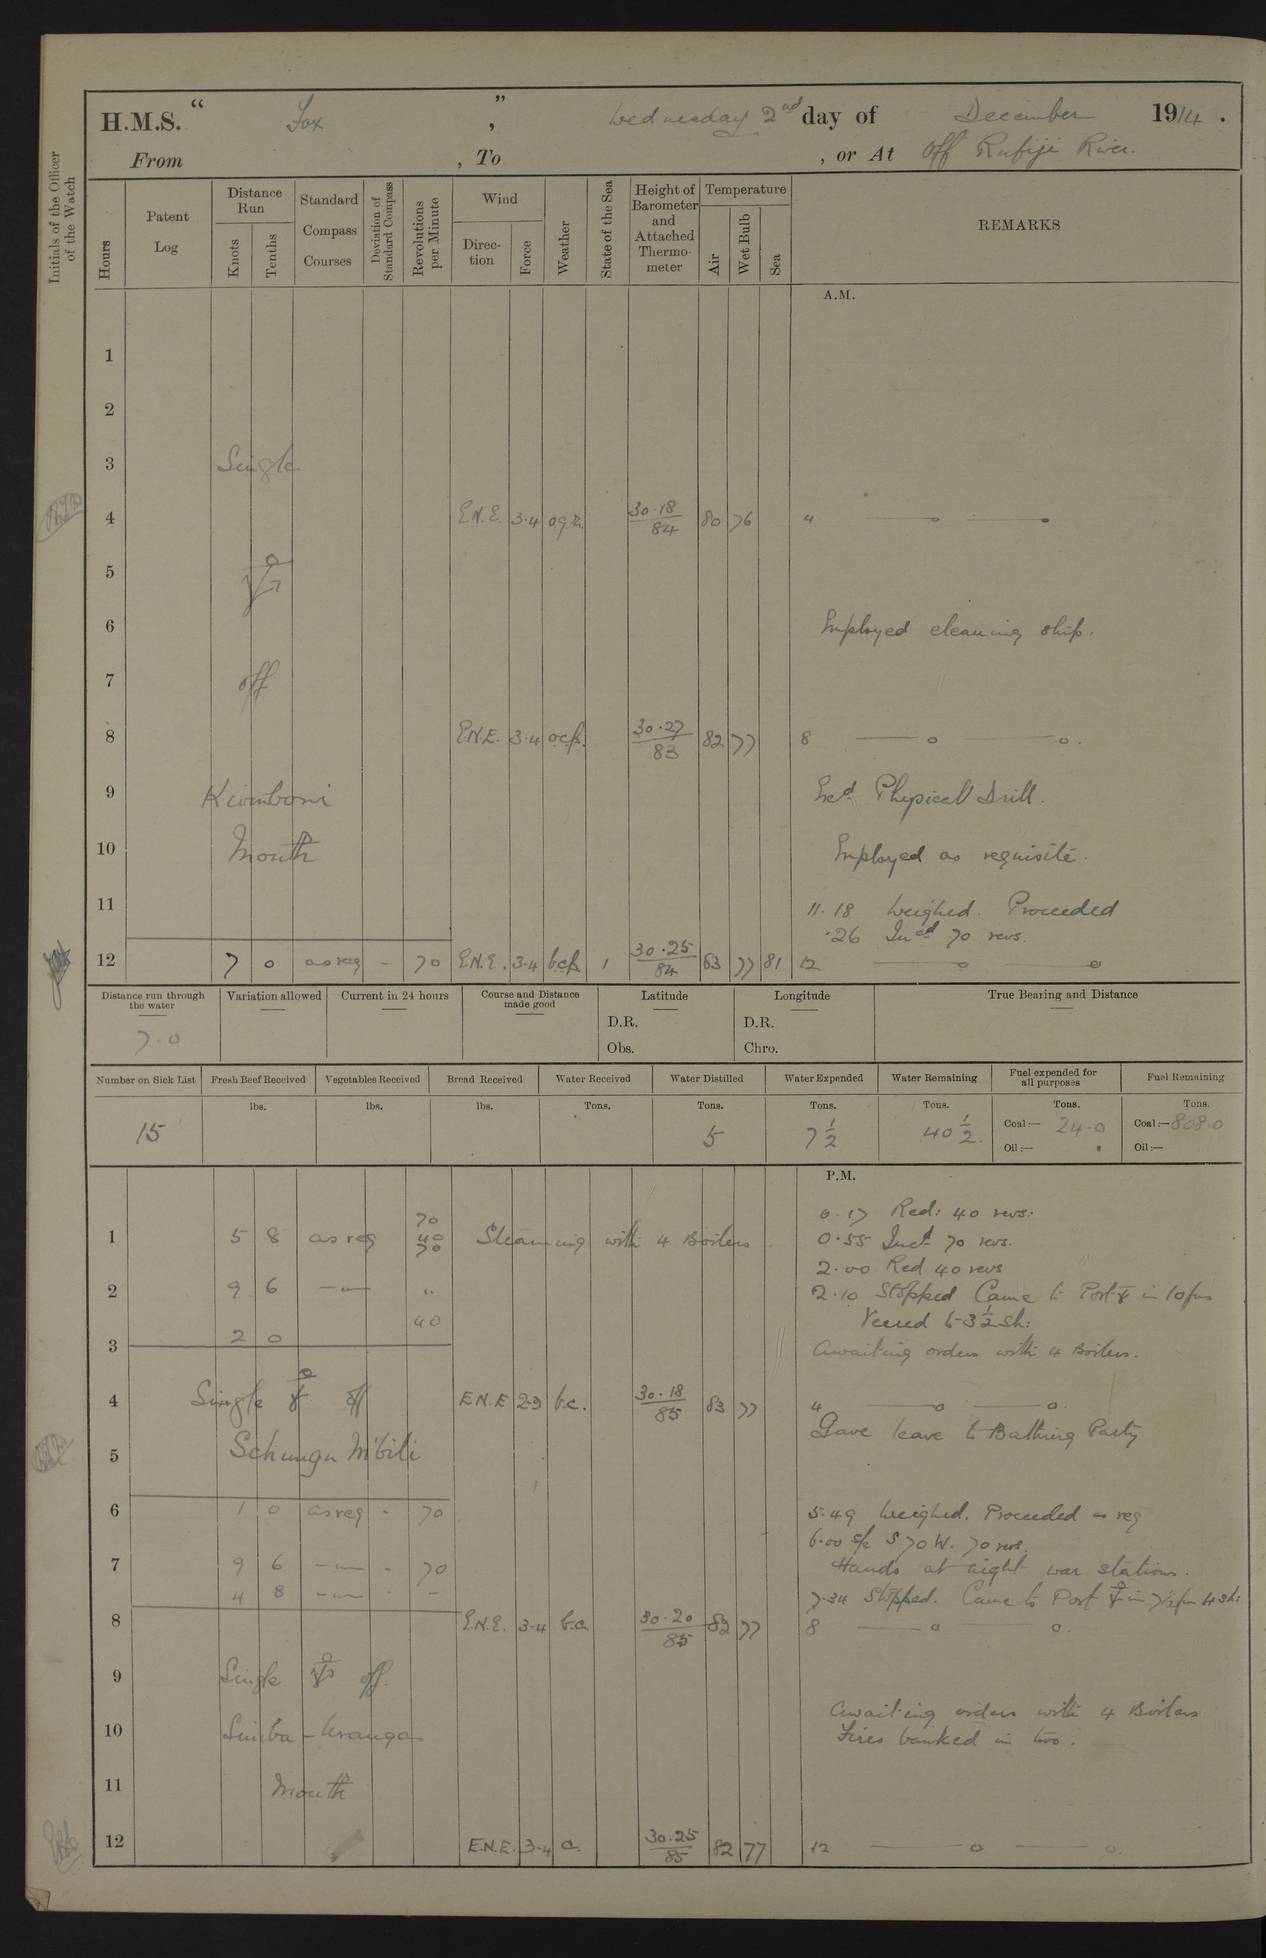 H.M.S. " Fox ", Wednesday 2nd day of December 1914.
From , To , or At Off Rufiji River.
Initials of the Officer of the Watch
Hours
Patent Log
Distance Run
Knots
Tenths
Standard Compass Courses
Deviation of Standard Compass
Revolutions per Minute
Wind
Direction
Force
Weather
State of the Sea
Height of Barometer and Attached Thermometer
Temperature
Air
Wet Bulb
Sea
REMARKS
A.M.
1
2
3 Single
4 E.N.E. 3·4 30·18/84 80 76 4 ——o ——o
5
6 Employed cleaning ship.
7 off
8 E.N.E. 3·4 30·27/83 82 77 8 ——o ——o.
9 Kiomboni Exd. Physical Drill.
10 Mouth Employed as requisite.
11 11·18 Weighed. Proceeded
·26 Incd 70 revs.
12 7 0 as req - 70 E.N.E. 3·4 1 30·25/84 83 77 81 12 ——o ——o
Distance run through the water
Variation allowed
Current in 24 hours
Course and Distance made good
Latitude
Longitude
True Bearing and Distance
7·0
D.R.
Obs.
D.R.
Chro.
Number on Sick List
Fresh Beef Received
Vegetables Received
Bread Received
Water Received
Water Distilled
Water Expended
Water Remaining
Fuel expended for all purposes
Fuel Remaining
lbs. lbs. lbs. Tons. Tons. Tons. Tons. Tons. Tons.
15 5 7 1/2 40 1/2. Coal:— 24·0 Coal:— 808·0
Oil:— Oil:—
P.M.
0·17 Red: 40 revs:
1 5 8 as req 70 40 70 Steaming with 4 Boilers. 0·55 Incd 70 revs.
2·00 Red 40 revs
2 9 6 —"— " 2·10 Stopped Came to Port ⚓ in 10 fms
2 0 40 Veered to 3 1/2 Sh:
3 Awaiting orders with 4 Boilers.
4 Single ⚓ off E.N.E 2-3 b.c. 30·18/85 83 77 4 ——o ——o.
Gave leave to Bathing Party
5 Schungu M'bili
6 1 0 as req - 70 5·49 Weighed. Proceeded as req
6·00 S/c S 70 W. 70 revs.
7 9 6 —"— - 70 Hands at night war stations.
4 8 —"— - - 7·34 Stopped. Came to Port ⚓ in 7 1/2 fm 4 Sh:
8 E.N.E. 3·4 b.c. 30·20/85 82 77 8 ——o ——o.
9 Single ⚓ off.
Awaiting orders with 4 Boilers
10 Simba-Uranga Fires banked in two.
11 Mouth
12 E.N.E. 3·4 c. 30·25/85 82 77 12 ——o ——o.